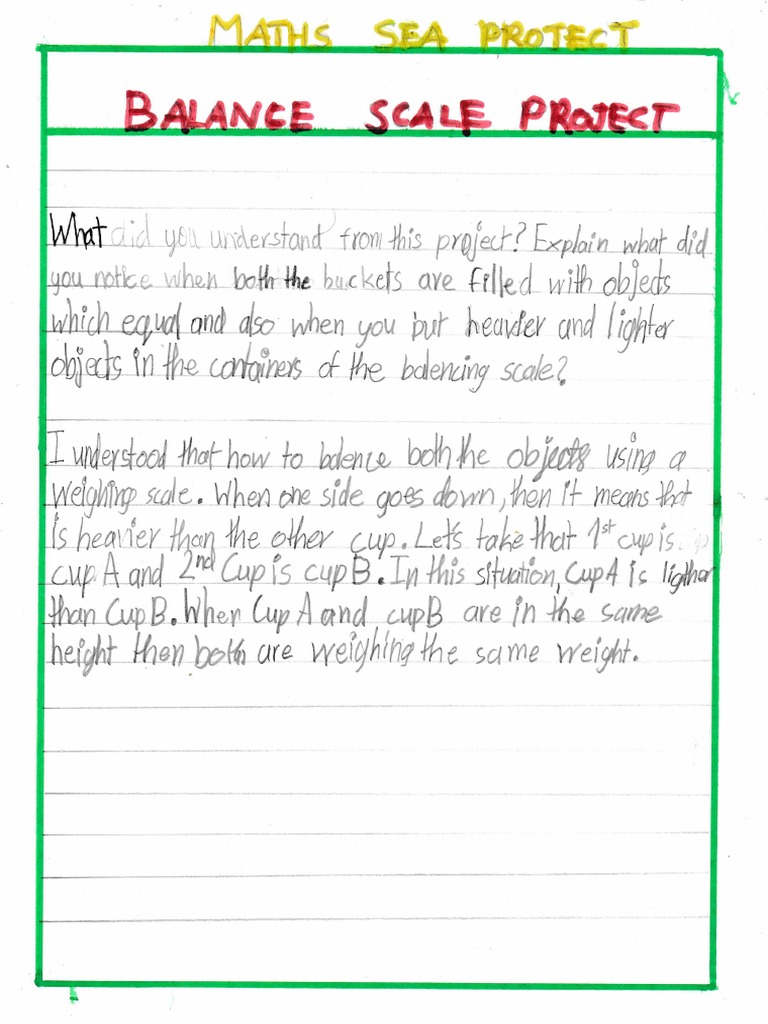 MATHS SEA PROTECT
BALANCE SCALE PROJECT
What did you understand from this project? Explain what did
you notice when both the buckets are filled with objects
which equal and also when you but heavier and lighter
objects in the containers of the balencing scale?
I understood that how to balence both the objects using a
weighing scale. When one side goes down, then it means that
is heavier than the other cup. Let's take that 1st cup is
cup A and 2nd Cup is cup B. In this situation, Cup A is ligther
than Cup B. When Cup A and cup B are in the same
height then both are weighing the same weight.